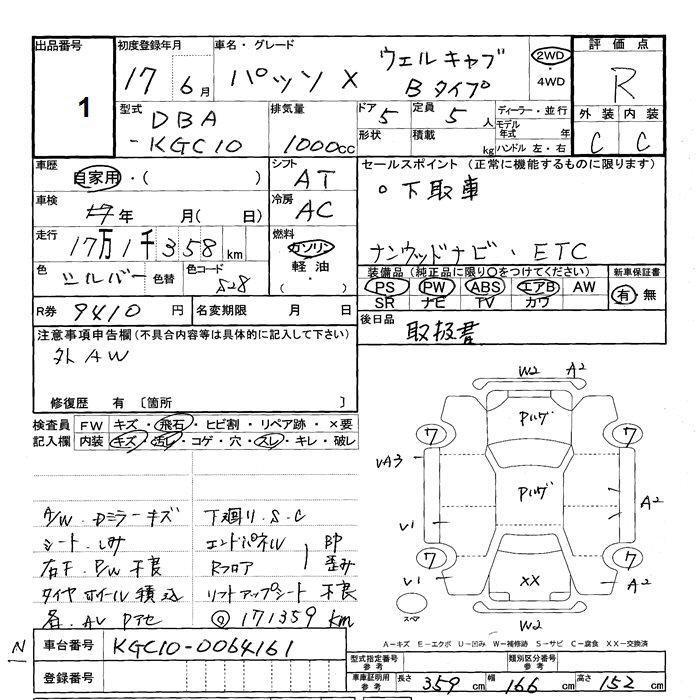 出品番号
1
初度登録年月
17年 6月
車名・グレード
パッソ X
ウェルキャブ
Bタイプ
2WD
・
4WD
評価点
R
外装 内装
C C
型式
DBA
-KGC10
排気量
1000cc
ドア 5
定員 5人
形状
積載 kg
ディーラー・並行
モデル年式 年
ハンドル 左・右
車歴
自家用・( )
シフト
AT
セールスポイント(正常に機能するものに限ります)
○下取車
車検
年 月( 日)
冷房
AC
走行
17万1千358km
燃料
ガソリン
軽油・
( )
ナビ・ETC
色
シルバー
色替
色コード
S28
装備品(純正品に限り○をつけてください)
PS PW ABS エアB AW
SR ナビ TV カワ
新車保証書
有・無
R券 9410円
名変期限 月 日
後日品
取扱書
注意事項申告欄(不具合内容等は具体的に記入して下さい)
外AW
修復歴 有 〔箇所 〕
検査員記入欄
FW キズ・飛石・ヒビ割・リペア跡・×要
内装 キズ・汚レ・コゲ・穴・スレ・キレ・破レ
A/W.Dミラーキズ
シート.シミ
右F.P/W 不良
タイヤホイール積込
下廻リ.S.C
エンドパネル
Rフロア
印
歪み
リフトアップシート 不良
171359km
W2 A2
7 7
VA3
V1
V1
A2
7 7
A2
XX
W2
スペア
A-キズ E-エクボ U-凹み W-補修跡 S-サビ C-腐食 XX-交換済
N
車台番号 KGC10-0064161
登録番号
型式指定番号参考
類別区分番号参考
車庫証明用参考
長さ 359cm 幅 166cm 高さ 152cm